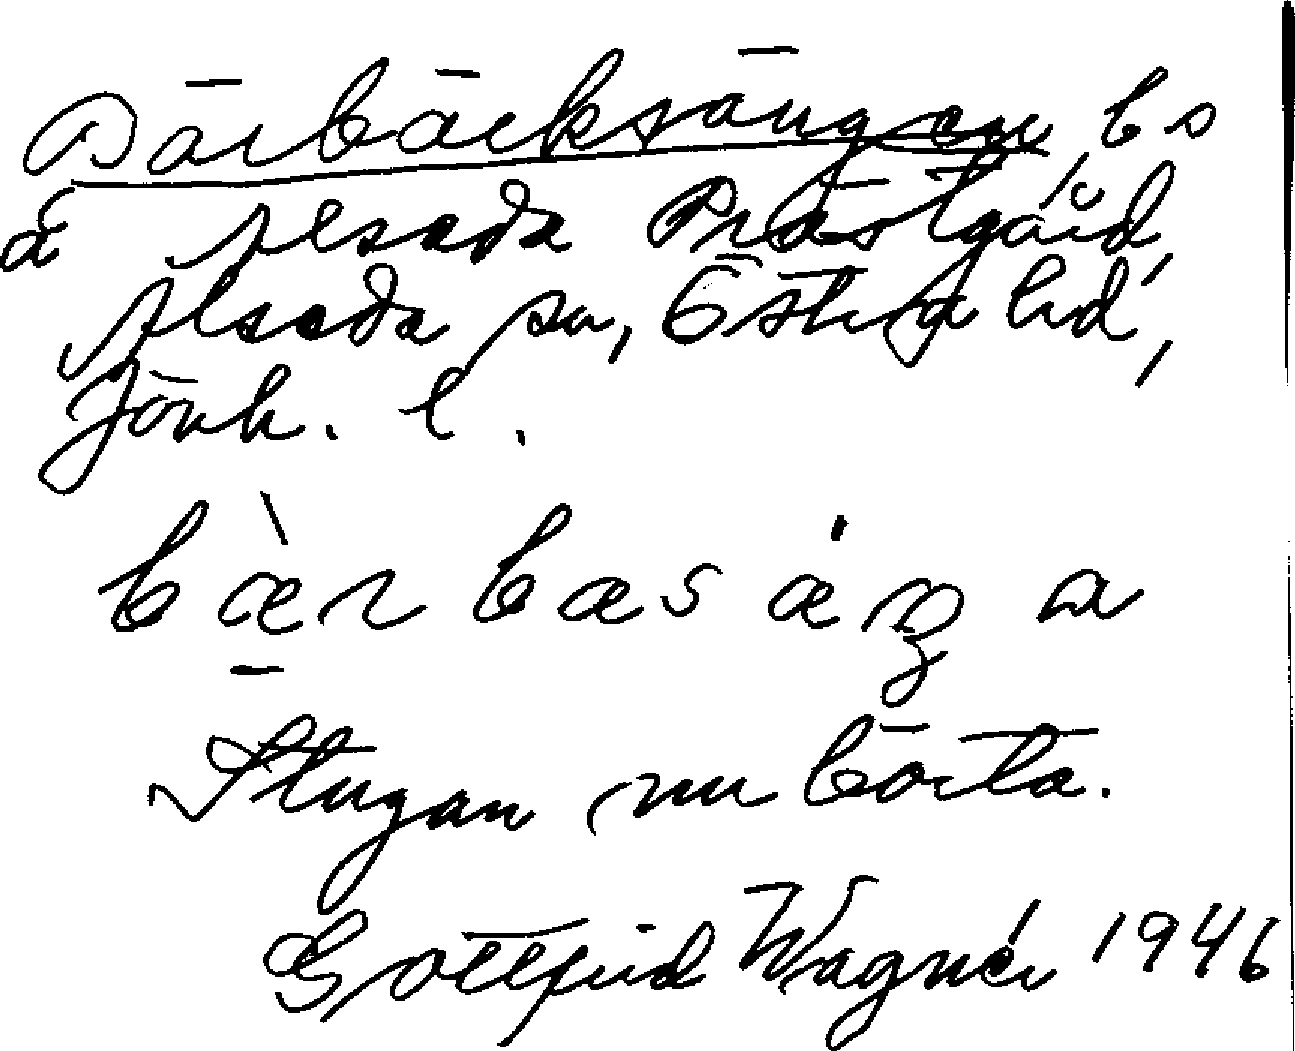 Bärbäcksängen, bs
å Flisada Prästgård,
Flisada sn, Östra hd,
Jönk. l.
bær bæs æŋ a
Stugan nu borta.
Gottfrid Wagnér 1946